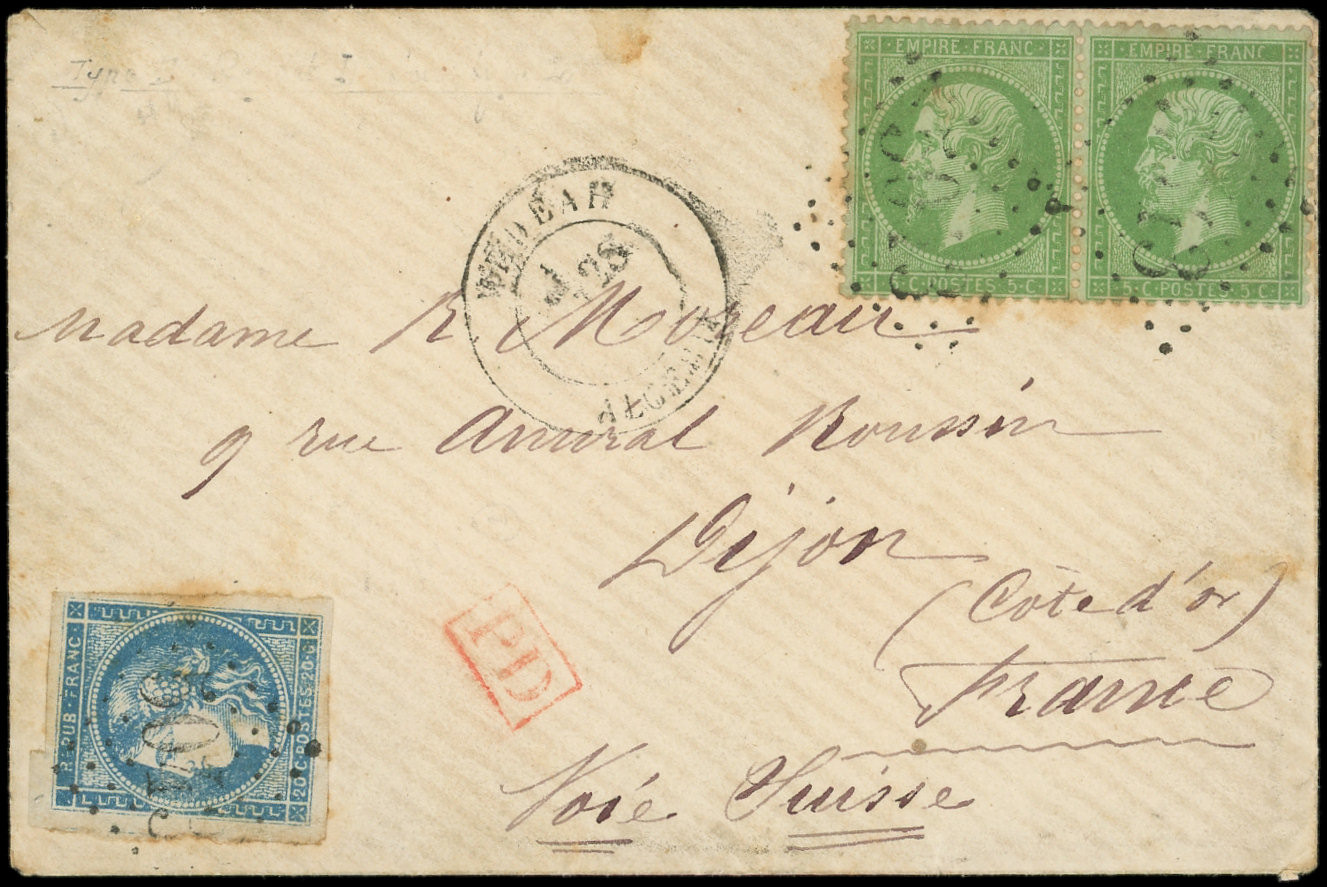 EMPIRE · FRANC
EMPIRE · FRANC
C · POSTES · 5 · C
5 · C · POSTES · 5 · C
Type I
MÉDÉAH
28
ALGÉRIE
Madame R. Moreau
9 rue Amiral Roussin
Dijon
(Côte d'or)
France
Voie Suisse
PD
REPUB · FRANC
20 · C · POSTES · 20 · C